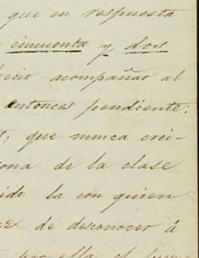 que en respuesta
cincuenta y dos
recio acompañar al
entonces pendiente:
, que nunca crei-
ona de la clase
ido la con quien
de desconocer á
por ella el